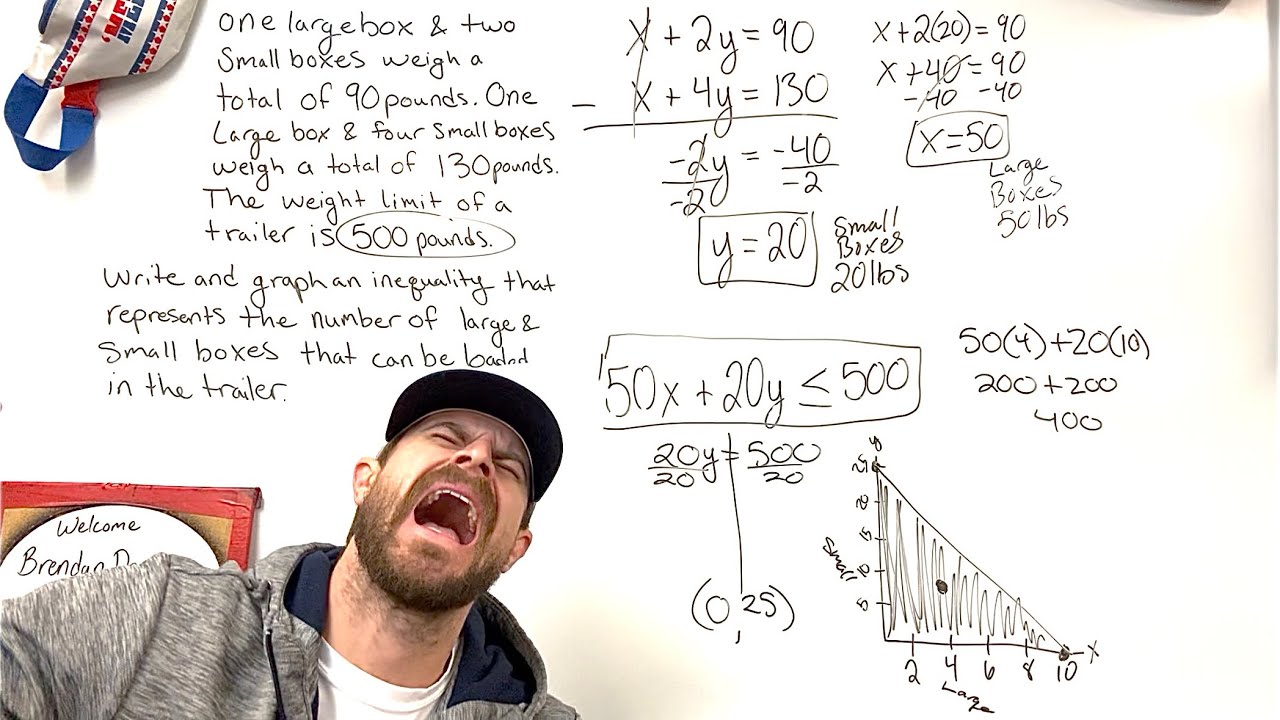 one large box & two
Small boxes weigh a
total of 90 pounds. One
Large box & four small boxes
weigh a total of 130 pounds.
The weight limit of a
trailer is 500 pounds.
Write and graph an inequality that
represents the number of large &
Small boxes that can be loaded
in the trailer.
x + 2y = 90
- x + 4y = 130
-2y = -40
-2 -2
y = 20
Small
Boxes
20lbs
x + 2(20) = 90
x + 40 = 90
-40 -40
x = 50
Large
Boxes
50 lbs
50x + 20y ≤ 500
20y = 500
20 20
(0, 25)
50(4) + 20(10)
200 + 200
400
25
20
15
10
5
Small
2 4 6 8 10 X
Large
Welcome
Brendan